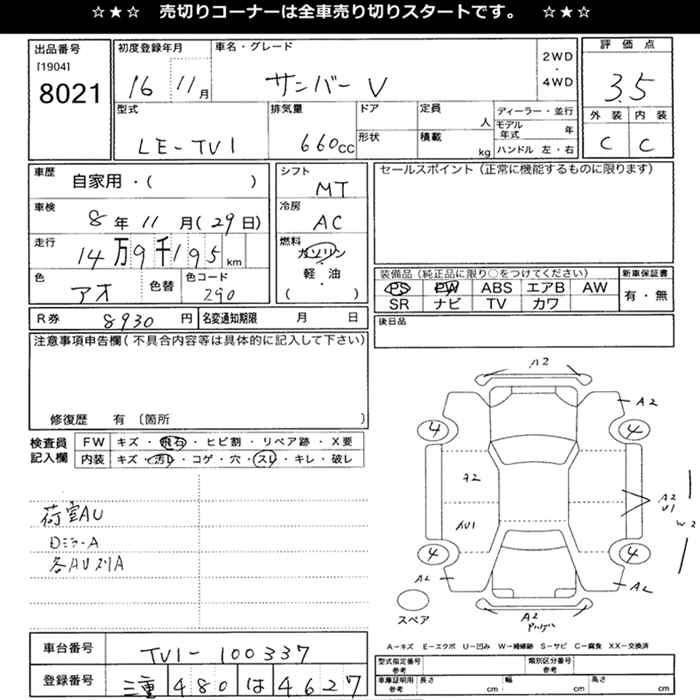 ☆★☆ 売切りコーナーは全車売り切りスタートです。 ☆★☆
出品番号
[1904]
8021
初度登録年月
16 11月
車名・グレード
サンバー V
2WD
・
4WD
評価点
3.5
外装 内装
C C
型式
LE-TV1
排気量
660cc
ドア
形状
定員
人
積載
kg
ディーラー・並行
モデル年式 年
ハンドル 左・右
車歴
自家用・( )
車検
8年 11月(29日)
走行
14万9千195km
色
アオ
色替
色コード
290
シフト
MT
冷房
AC
燃料
ガソリン
軽・油
( )
セールスポイント(正常に機能するものに限ります)
装備品(純正品に限り○をつけてください)
PS PW ABS エアB AW
SR ナビ TV カワ
新車保証書
有・無
R券 8930円
名変通知期限 月 日
後日品
注意事項申告欄(不具合内容等は具体的に記入して下さい)
修復歴 有〔箇所 〕
検査員
記入欄
FW キズ・飛石・ヒビ割・リペア跡・X要
内装 キズ・汚レ・コゲ・穴・スレ・キレ・破レ
荷室AU
各AU
A2
A2
4 4
A2
AU1
A2
U1
W2
4 4
A2
A2
A2
スペア
A-キズ E-エクボ U-凹み W-補修跡 S-サビ C-腐食 XX-交換済
車台番号
TV1-100337
登録番号
三重 480 は 4627
型式指定番号
参考
類別区分番号
参考
車庫証明用
参考
長さ cm 幅 cm 高さ cm